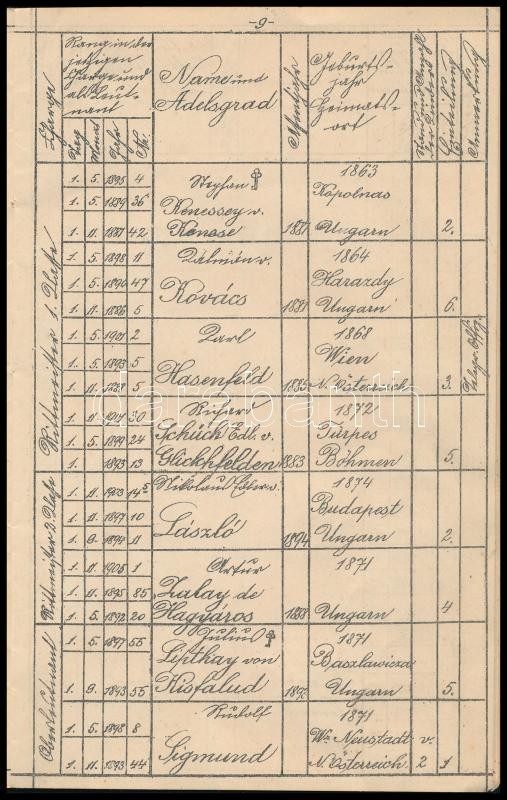 -9-
Charge
Rang in der
jetzigen
Charge und
als Leut-
nant
Tag
Monat
Jahr
Nr.
Name und
Adelsgrad
Geburts-
jahr
Heimats-
ort
Einteilung
Anmerkung
Rittmeister 1. Classe
1. 5. 1895 4
1. 5. 1889 36
1. 11. 1881 42
Stephan
Kenessey v.
Kenese
1881
1863
Kápolnas
Ungarn
2.
1. 5. 1898 11
1. 5. 1890 47
1. 11. 1886 5
Kálmán v.
Kovács
1881
1864
Harazdy
Ungarn
6.
1. 5. 1901 2
1. 5. 1893 5
1. 11. 1888 5
Karl
Hasenfeld
1885
1868
Wien
N. Österreich
3.
1. 5. 1899 24
1. 1893 13
Richard
Schück Edl. v.
Glickhfelden
1883
1872
Türpes
Böhmen
5.
Rittmeister 2. Classe
1. 11. 1903 145
1. 11. 1897 10
1. 9. 1894 11
Nikolaus Edler v.
László
1894
1874
Budapest
Ungarn
2.
1. 11. 1905 1
1. 11. 1895 85
1. 5. 1892 20
Artur
Zalay de
Hagyáros
1888
1871
Ungarn
4
Oberleutnant
1. 5. 1897 55
1. 9. 1893 55
Julius
Lipthay von
Kisfalud
1871
Baszlawicza
Ungarn
5.
1. 5. 1898 8
1. 11. 1893 44
Rudolf
Sigmund
1871
Wr. Neustadt
N. Österreich
v.
2 1
darabanth